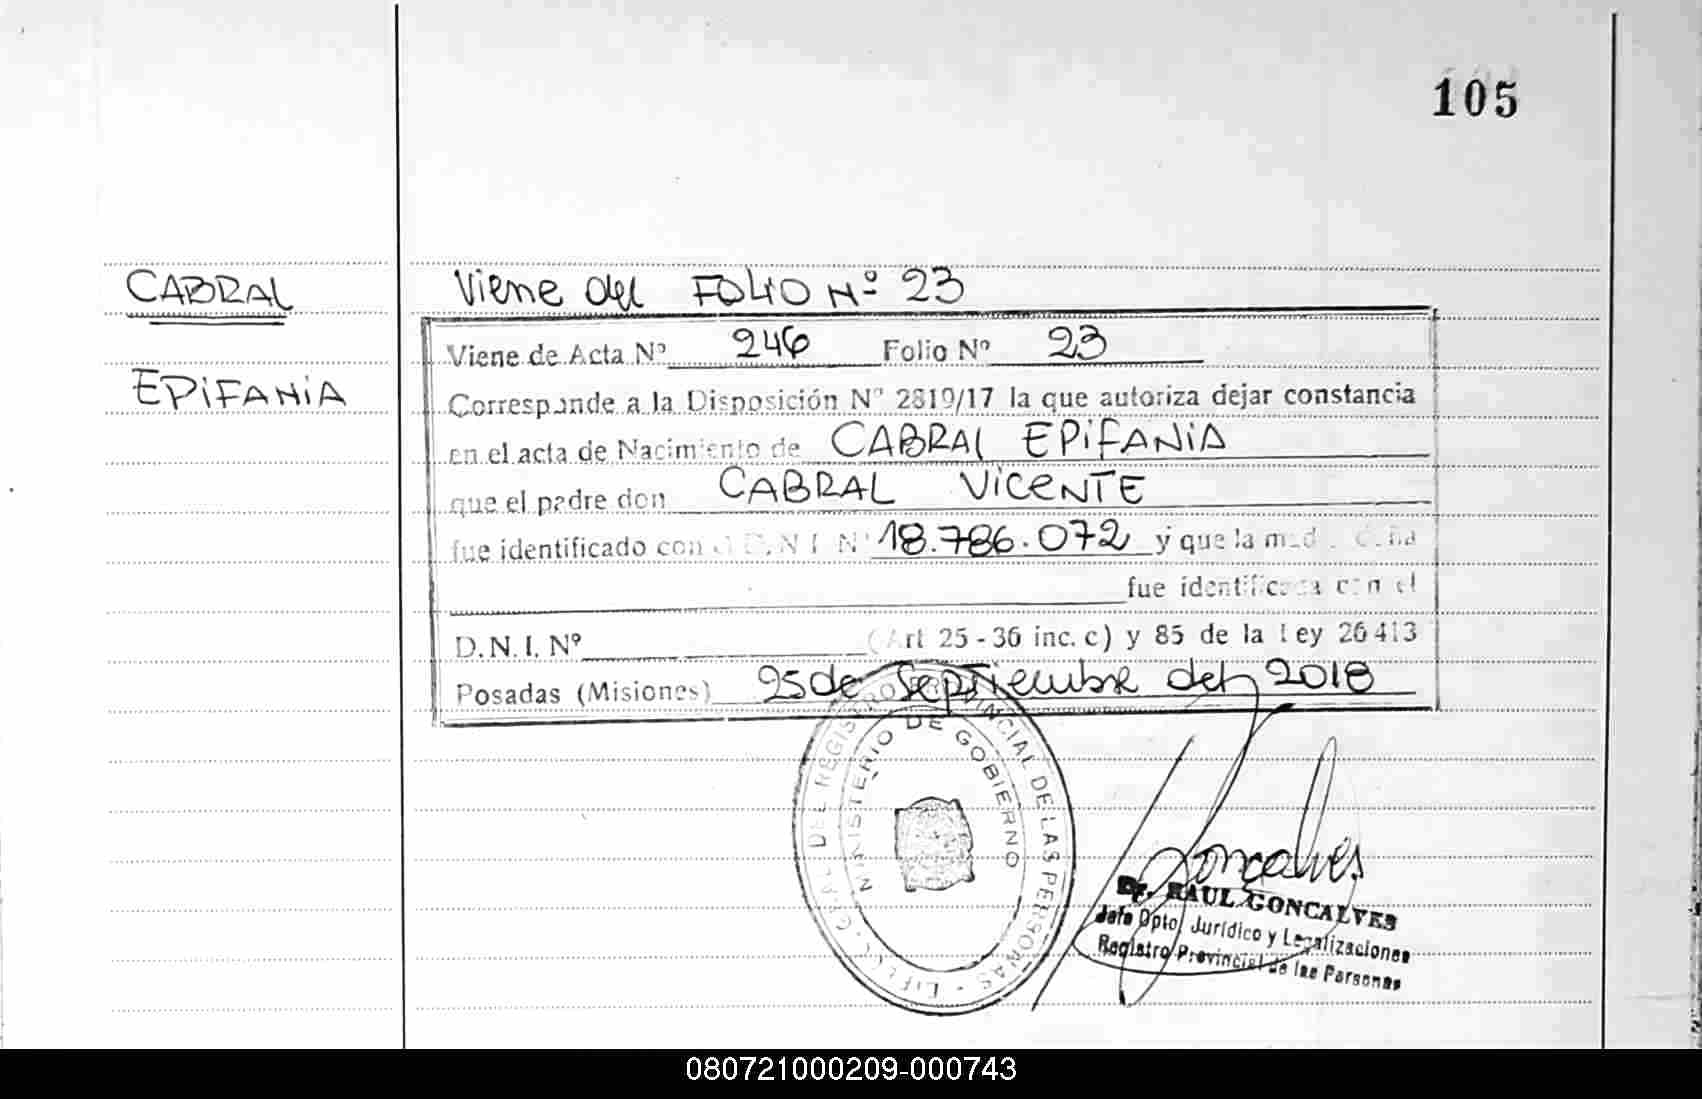 105
CABRAL
EPiFANiA
Viene del FOLIO Nº 23
Viene de Acta Nº 246 Folio Nº 23
Corresponde a la Disposición Nº 2819/17 la que autoriza dejar constancia
en el acta de Nacimiento de CABRAL EPiFANiA
que el padre don CABRAL ViCENTE
fue identificado con el D.N.I. Nº 18.786.072 y que la madre doña
fue identificada con el
D.N.I. Nº (Art 25-36 inc. c) y 85 de la Ley 26413
Posadas (Misiones) 25 de Septiembre del 2018
GRAL DEL REGISTRO PROVINCIAL DE LAS PERSONAS
MINISTERIO DE GOBIERNO
Goncalves
RAUL GONCALVES
Jefe Dpto. Jurídico y Legalizaciones
Registro Provincial de las Personas
080721000209-000743